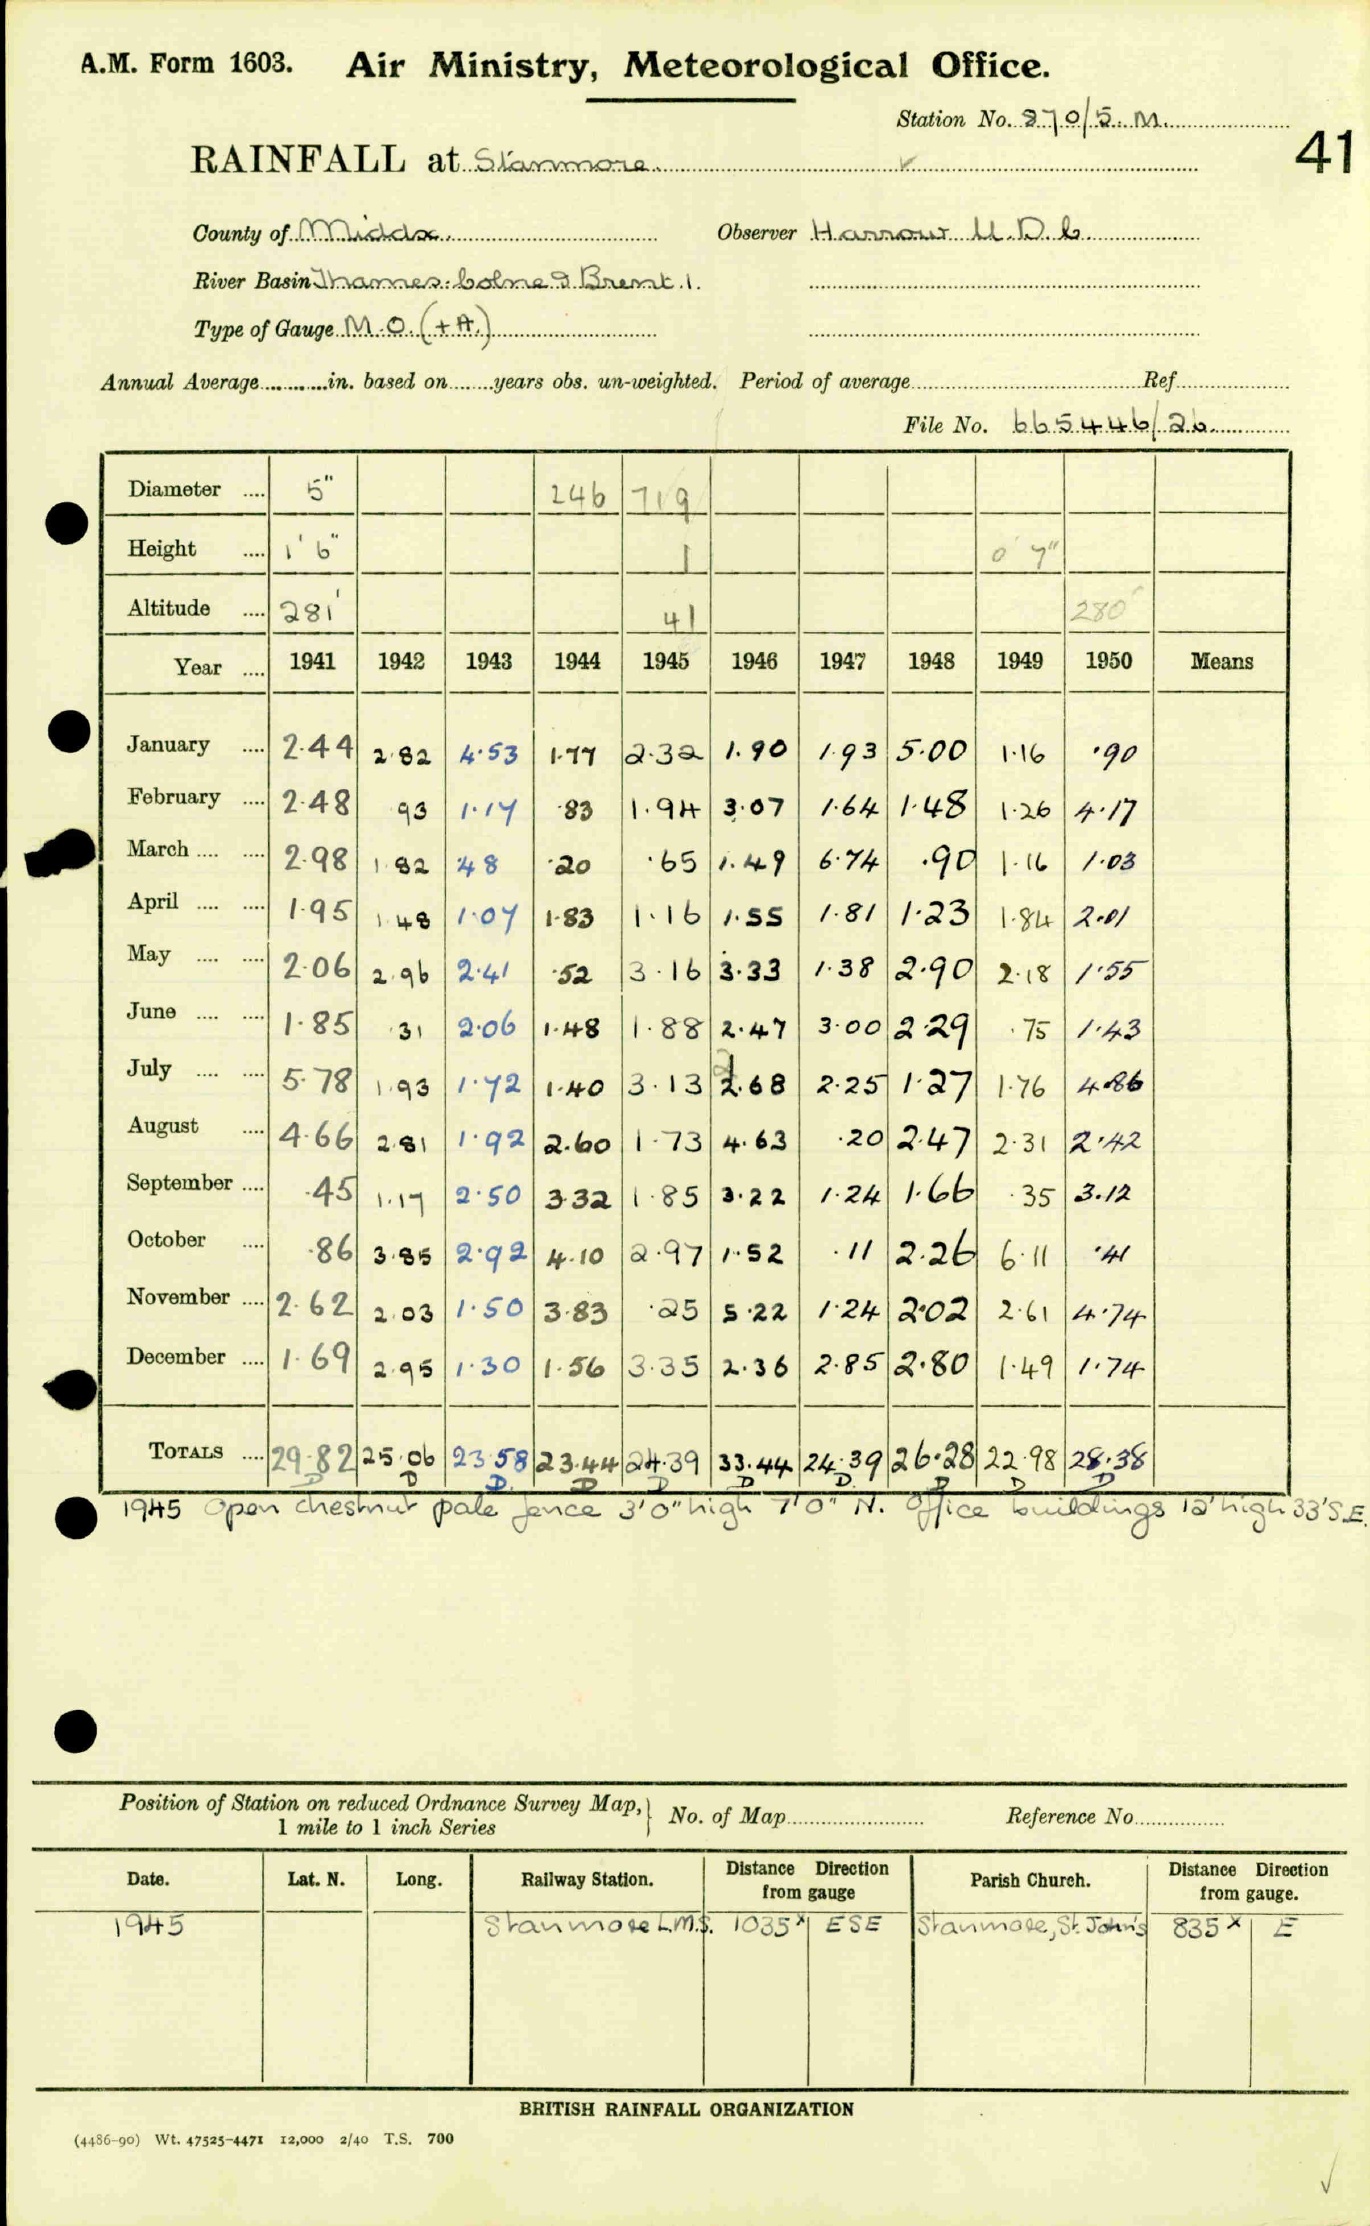 A.M. Form 1603. Air Ministry, Meteorological Office.
Station No. 270/5. M.
41
RAINFALL at Stanmore.
County of Middx. Observer Harrow U.D.C.
River Basin Thames: Colne & Brent. 1.
Type of Gauge M.O. (+A.)
Annual Average............in. based on........years obs. un-weighted. Period of average Ref
File No. 665446/26
Diameter .... 5" 246 719
Height .... 1' 6" 1 0' 7"
Altitude .... 281' 41 280'
Year .... 1941 1942 1943 1944 1945 1946 1947 1948 1949 1950 Means
January .... 2.44 2.82 4.53 1.77 2.32 1.90 1.93 5.00 1.16 .90
February .... 2.48 .93 1.17 .83 1.94 3.07 1.64 1.48 1.26 4.17
March .... .... 2.98 1.82 .48 .20 .65 1.49 6.74 .90 1.16 1.03
April .... .... 1.95 1.48 1.07 1.83 1.16 1.55 1.81 1.23 1.84 2.01
May .... .... 2.06 2.96 2.41 .52 3.16 3.33 1.38 2.90 2.18 1.55
June .... .... 1.85 .31 2.06 1.48 1.88 2.47 3.00 2.29 .75 1.43
July .... .... 5.78 1.93 1.72 1.40 3.13 2.68 2.25 1.27 1.76 4.86
August .... 4.66 2.81 1.92 2.60 1.73 4.63 .20 2.47 2.31 2.42
September .... .45 1.17 2.50 3.32 1.85 3.22 1.24 1.66 .35 3.12
October .... .86 3.85 2.92 4.10 2.97 1.52 .11 2.26 6.11 .41
November .... 2.62 2.03 1.50 3.83 .25 5.22 1.24 2.02 2.61 4.74
December .... 1.69 2.95 1.30 1.56 3.35 2.36 2.85 2.80 1.49 1.74
TOTALS .... 29.82 25.06 23.58 23.44 24.39 33.44 24.39 26.28 22.98 28.38
D D D. D D D D. D D D
1945 Open chestnut pale fence 3'0" high 7'0" N. Office buildings 12' high 33' S.E.
Position of Station on reduced Ordnance Survey Map, 1 mile to 1 inch Series } No. of Map Reference No
Date. Lat. N. Long. Railway Station. Distance Direction from gauge Parish Church. Distance Direction from gauge.
1945 Stanmore L.M.S. 1035x ESE Stanmore, St. John's 835x E
BRITISH RAINFALL ORGANIZATION
(4486-90) Wt. 47525-4471 12,000 2/40 T.S. 700